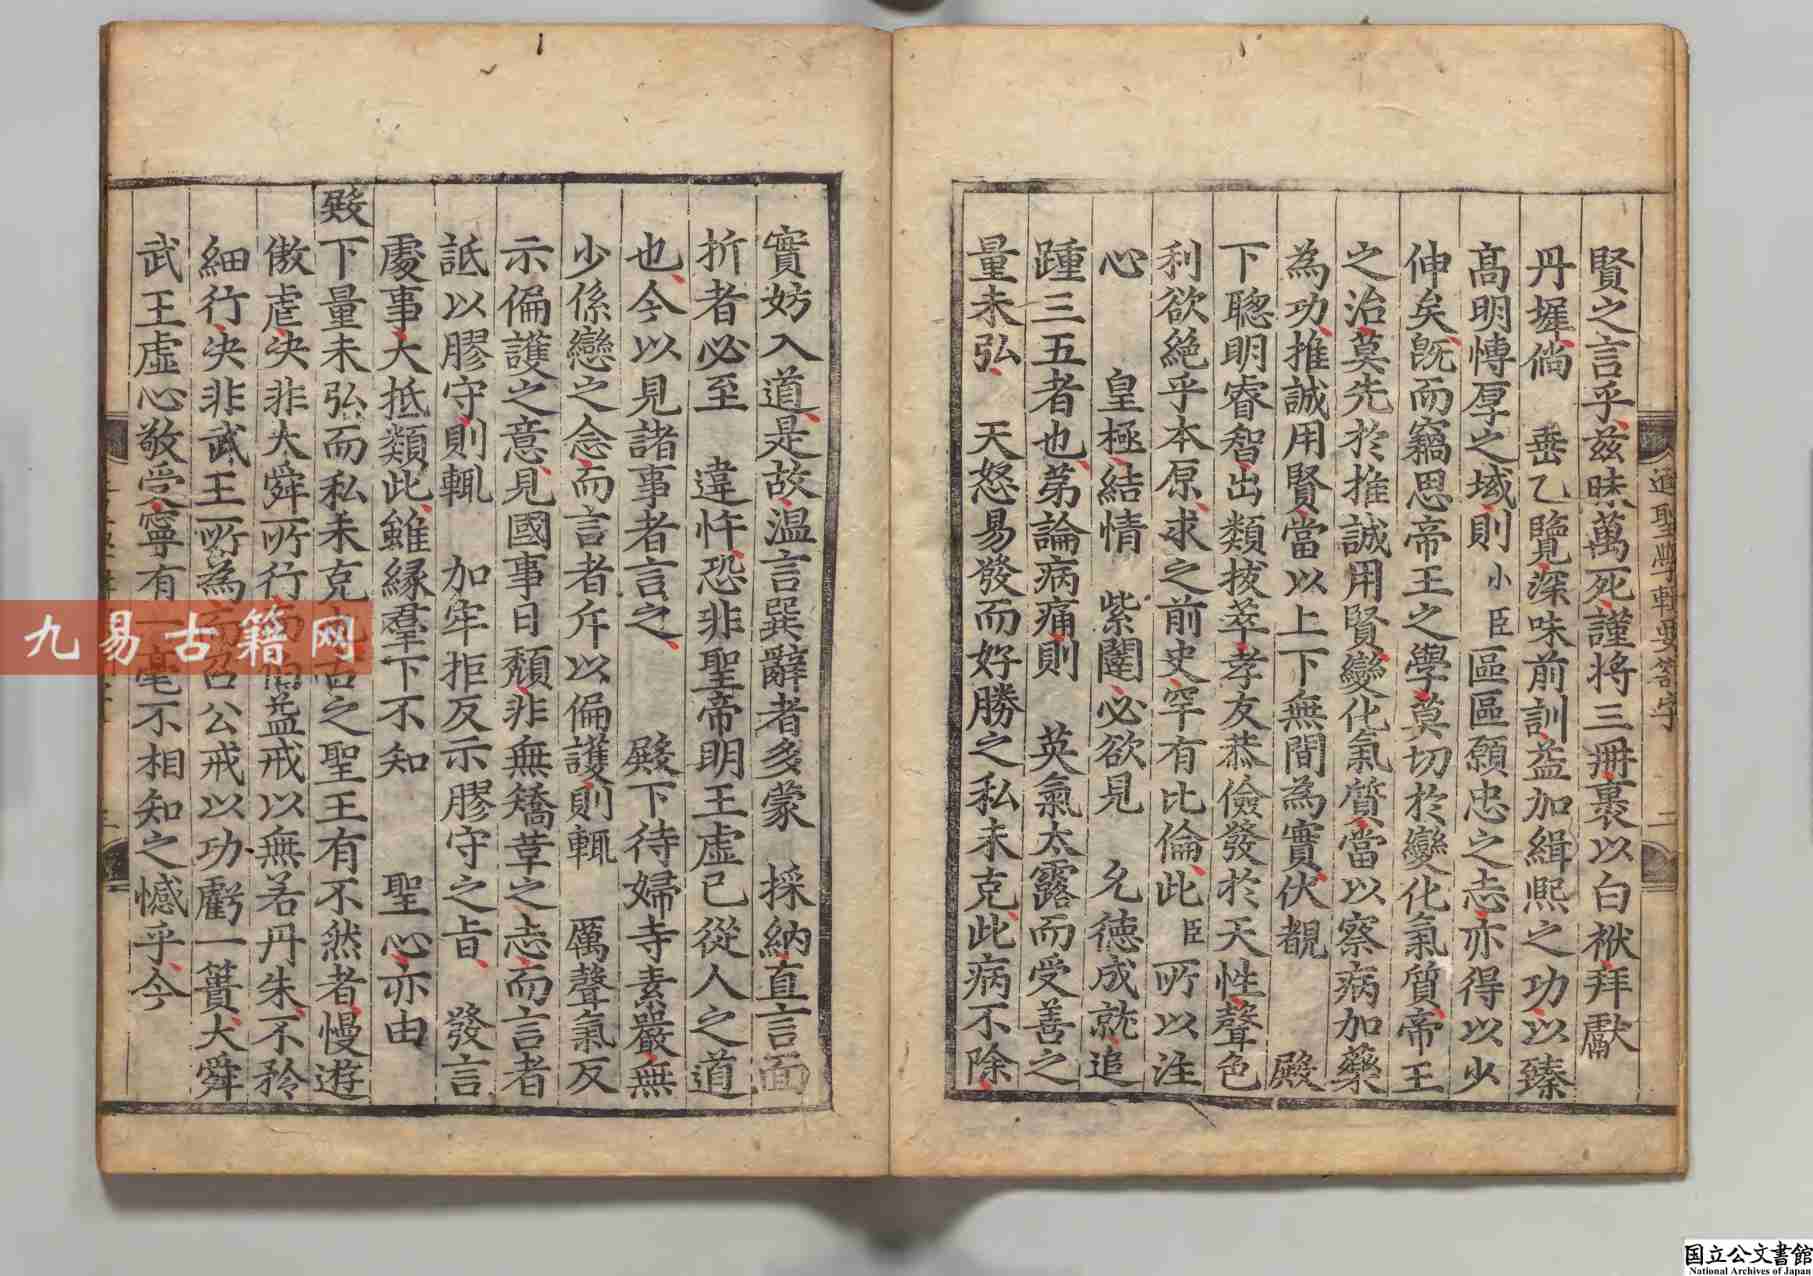 賢之言乎茲昧萬死謹將三冊裹以白袱拜獻
丹墀倘　垂乙覽深味前訓益加緝熙之功以臻
高明博厚之域則小臣區區願忠之志亦得以少
伸矣旣而竊思帝王之學莫切於變化氣質帝王
之治莫先於推誠用賢變化氣質當以察病加藥
為功推誠用賢當以上下無間為實伏覩　　殿
下聰明睿智出類拔萃孝友恭儉發於天性聲色
利欲絶乎本原求之前史罕有比倫此臣所以注
心　　皇極結情　紫闥必欲見　允德成就追
踵三五者也第論病痛則　英氣太露而受善之
量未弘　天怒易發而好勝之私未克此病不除
進聖學輯要箚子　二
實妨入道是故溫言巽辭者多蒙　採納直言面
折者必至　違忤恐非聖帝明王虛已從人之道
也今以見諸事者言之　　殿下待婦寺素嚴無
少係戀之念而言者斥以偏護則輒　厲聲氣反
示偏護之意見國事日頹非無矯革之志而言者
詆以膠守則輒　加牢拒反示膠守之旨　發言
處事大抵類此雖緣羣下不知　　聖心亦由
殿下量未弘而私未克也古之聖王有不然者慢遊
傲虐決非大舜所行而伯益戒以無若丹朱不矜
細行決非武王所為而召公戒以功虧一簣大舜
武王虛心敬受寧有一毫不相知之憾乎今
九易古籍网
国立公文書館
National Archives of Japan